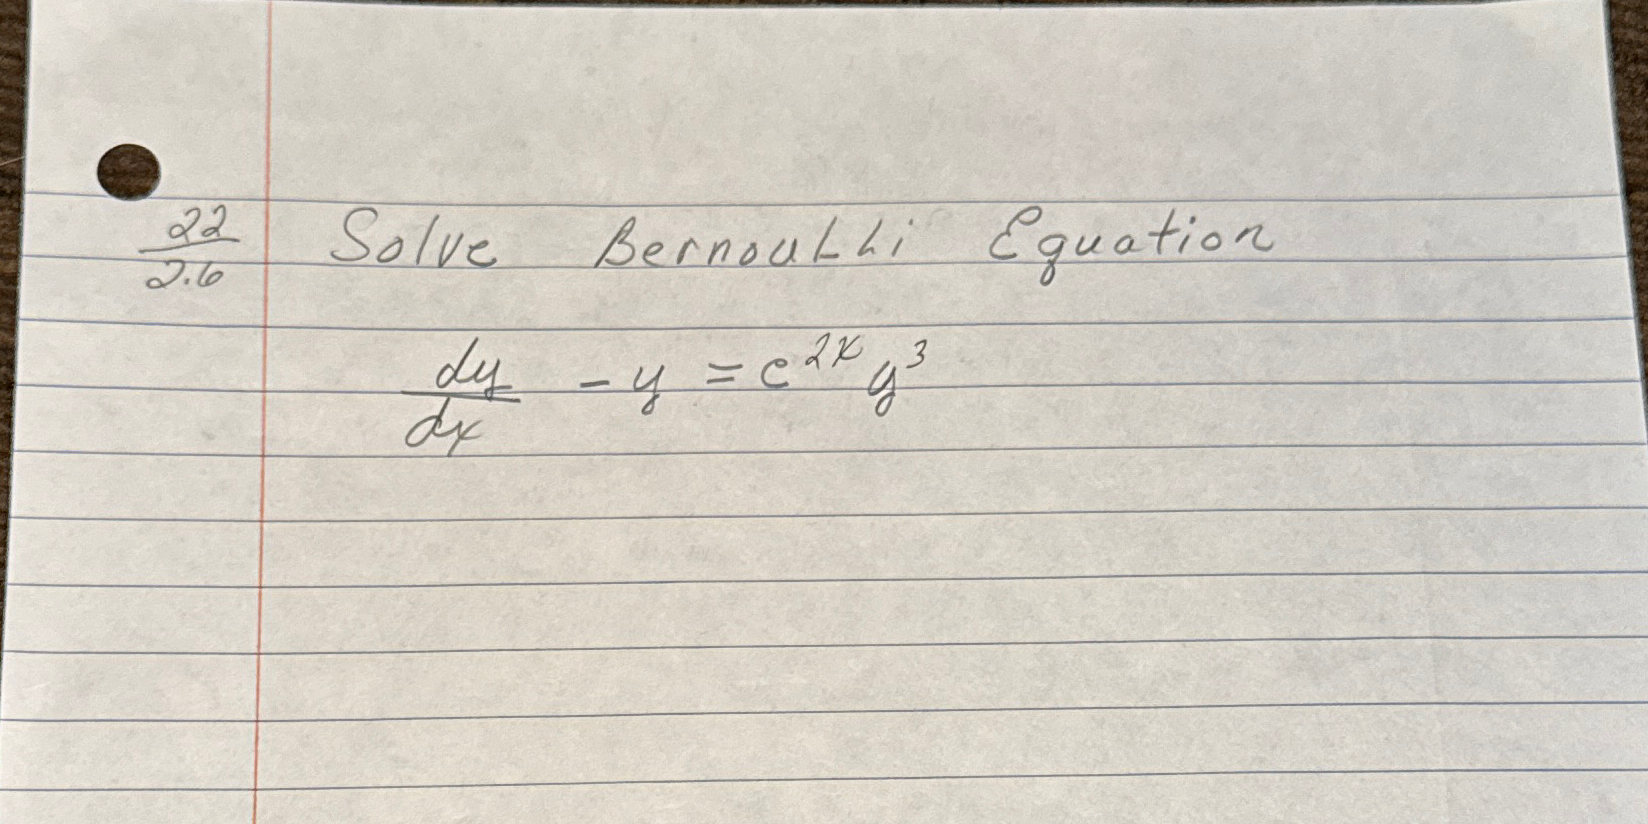 22/2.6 Solve Bernoulli Equation
dy/dx - y = e^2x y^3